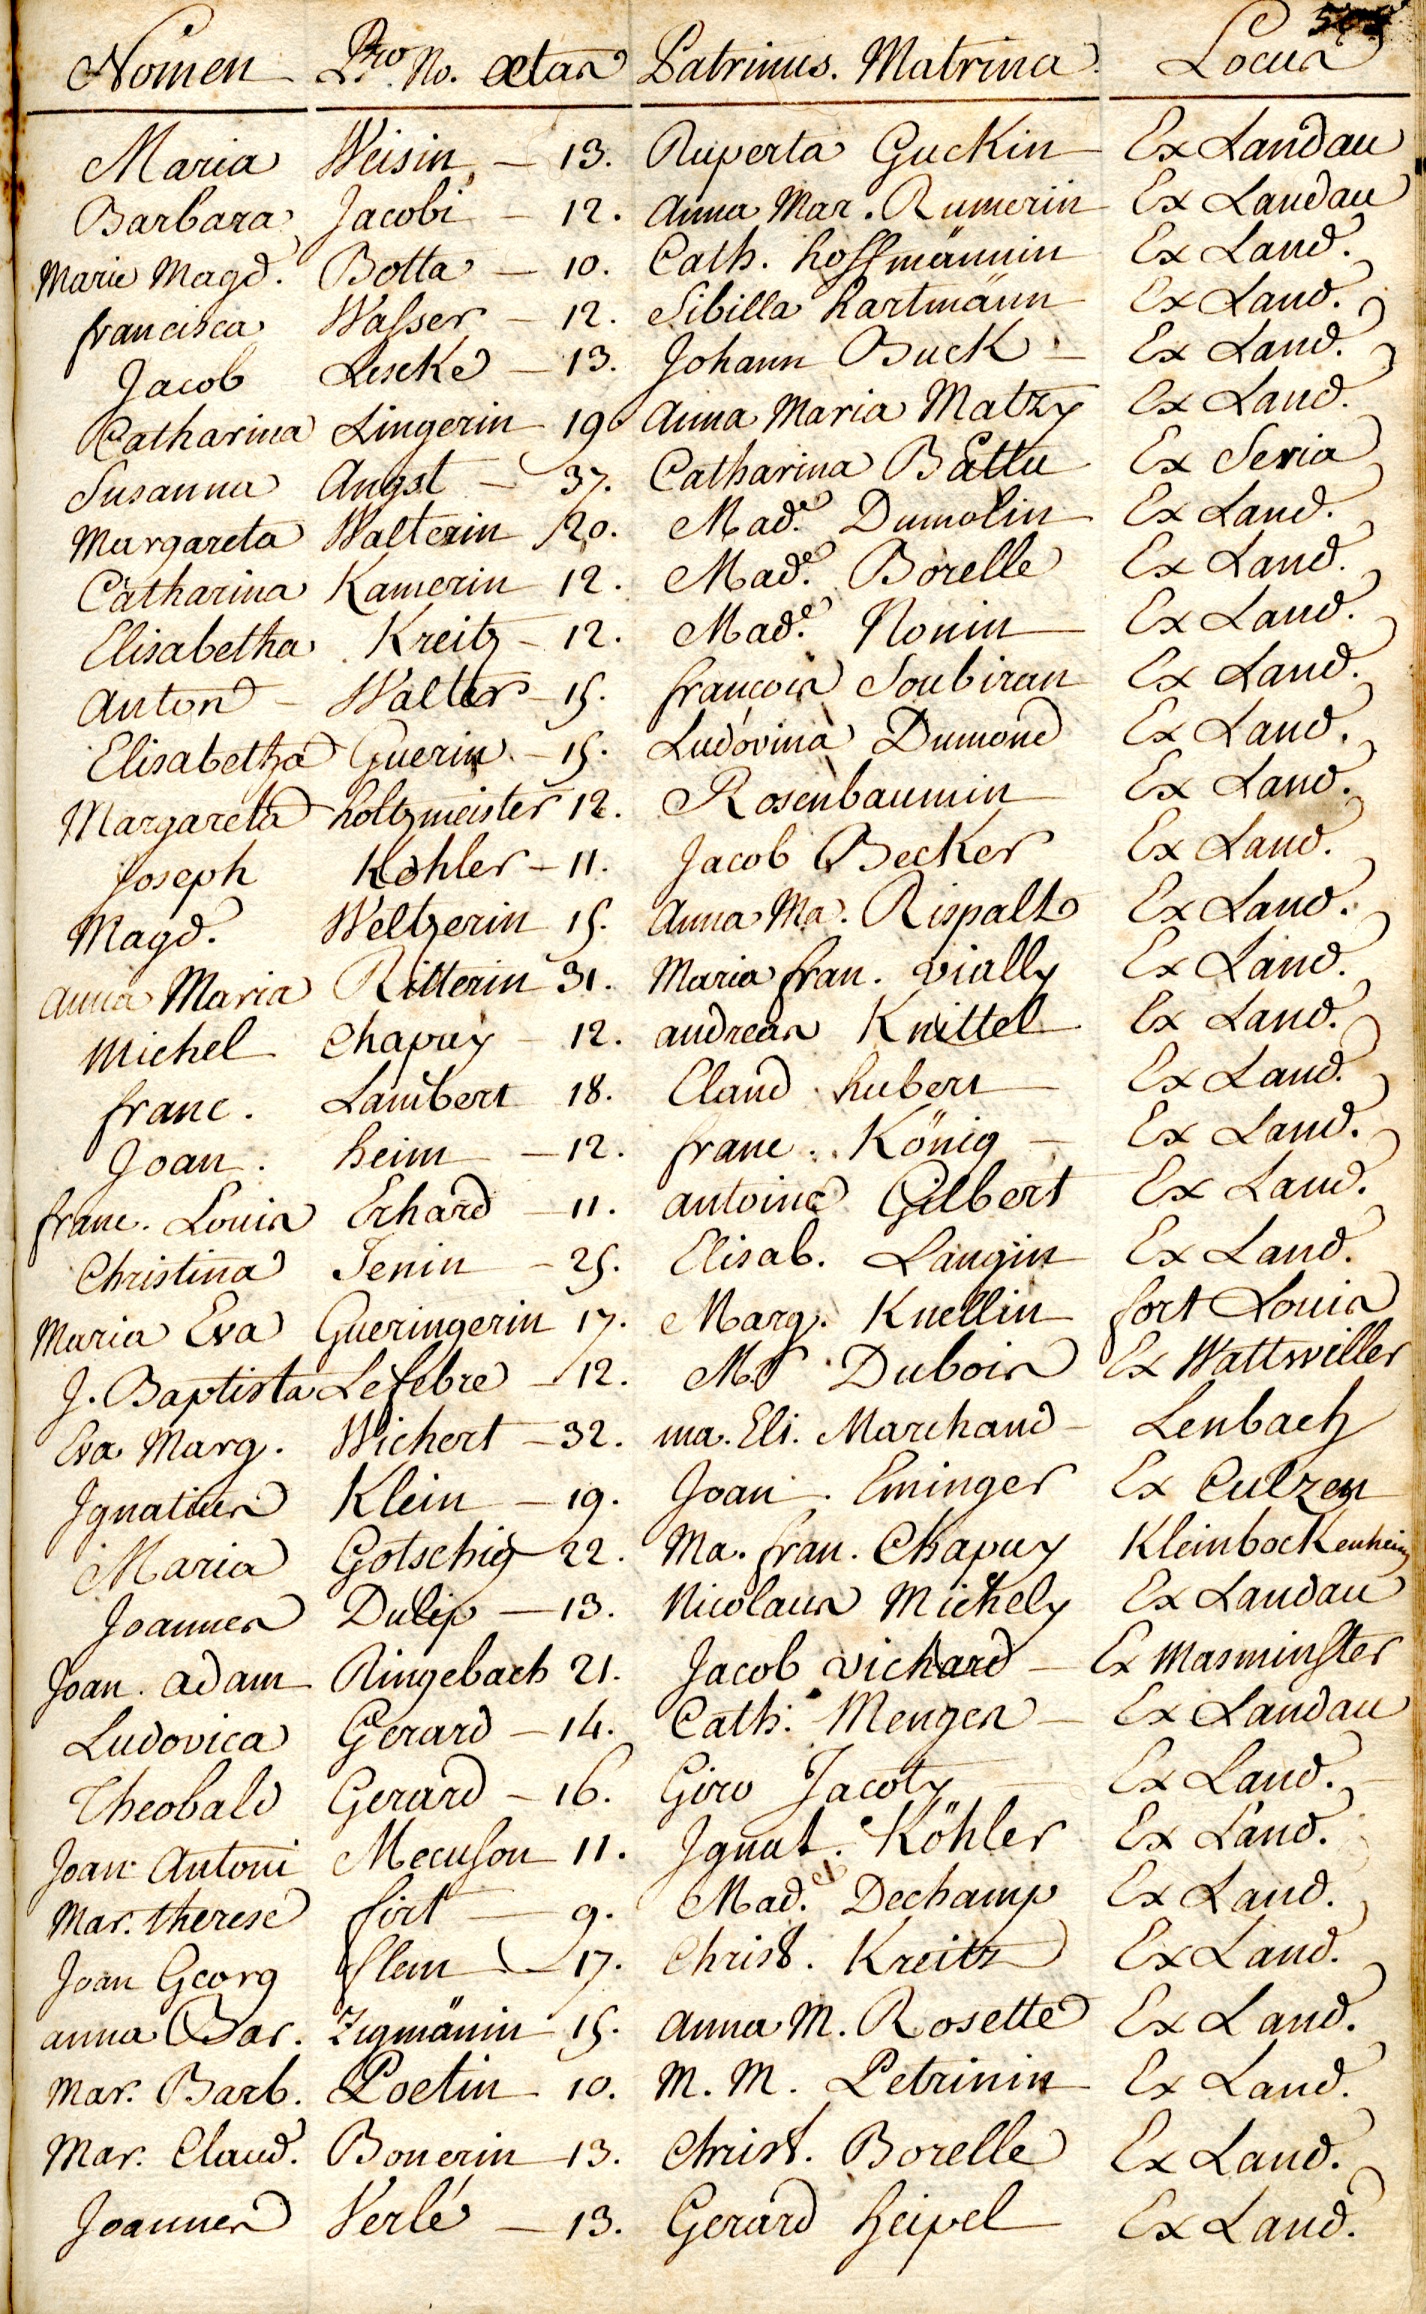 Nomen Pro No. Ætas Patrinus. Matrina. Locus
Maria Weisin, — 13. Ruperta Guckin Ex Landau
Barbara Jacobi — 12. Anna Mar. Rumerin Ex Landau
Marie Magd. Botta — 10. Cath. hoffmännin Ex Land.
francisca Wasser — 12. Sibilla hartmänn Ex Land.
Jacob Lescke — 13. Johann Buck — Ex Land.
Catharina Lingerin 19 Anna Maria Matzy Ex Land.
Susanna Angst — 37. Catharina Battu Ex Seria
Margareta Walterin 20. Made. Dumolin Ex Land.
Catharina Kamerin 12. Made. Borelle Ex Land.
Elisabetha Kreitz — 12. Made. Nonin Ex Land.
Anton — Walter — 15. francois Soubiran Ex Land.
Elisabetha Guerin — 15. Ludovina Dumond Ex Land.
Margareta holtzmeister 12. Rosenbaumin Ex Land.
Joseph Kohler — 11. Jacob Becker Ex Land.
Magd. Weltzerin 15. Anna Ma. Rispalt Ex Land.
Anna Maria Ritterin 31. Maria fran. Vially Ex Land.
Michel Chapuy — 12. andreas Knittel Ex Land.
franc. Lambert 18. Claud hubert Ex Land.
Joan. heim — 12. franc. König — Ex Land.
franc. Louis Erhard — 11. antoine Gilbert Ex Land.
Christina Jenin — 25. Elisab. Langin Ex Land.
Maria Eva Gueringerin 17. Marg. Knellin fort Louis
J. Baptista Lefebre — 12. Mr Dubois Ex Wattwiller
Eva Marg. Wichert — 32. ma. Eli. Marchand — Lenbach
Ignatius Klein — 19. Joan. Eminger Ex Culzen
Maria Gotschig 22. Ma. fran. Chapuy Kleinbockenheim
Joannes Dulip — 13. Nicolaus Michely Ex Landau
Joan. adam Ringebach 21. Jacob Vichard — Ex Masminster
Ludovica Gerard — 14. Cath. Menges — Ex Landau
Theobald Gerard — 16. Giro Jacoty Ex Land.
Joan Antoni Mecuson 11. Ignat. Köhler Ex Land.
Mar. therese fört — 9. Mad. Dechamp Ex Land.
Joan Georg flem — 17. Christ. Kreitz Ex Land.
anna Bar. Zigmänin 15. Anna M. Rosette Ex Land.
Mar. Barb. Poetin 10. M. M. Petrinin Ex Land.
Mar. Claud. Bonerin 13. Christ. Borelle Ex Land.
Joannes Verlé — 13. Gerard heipel Ex Land.